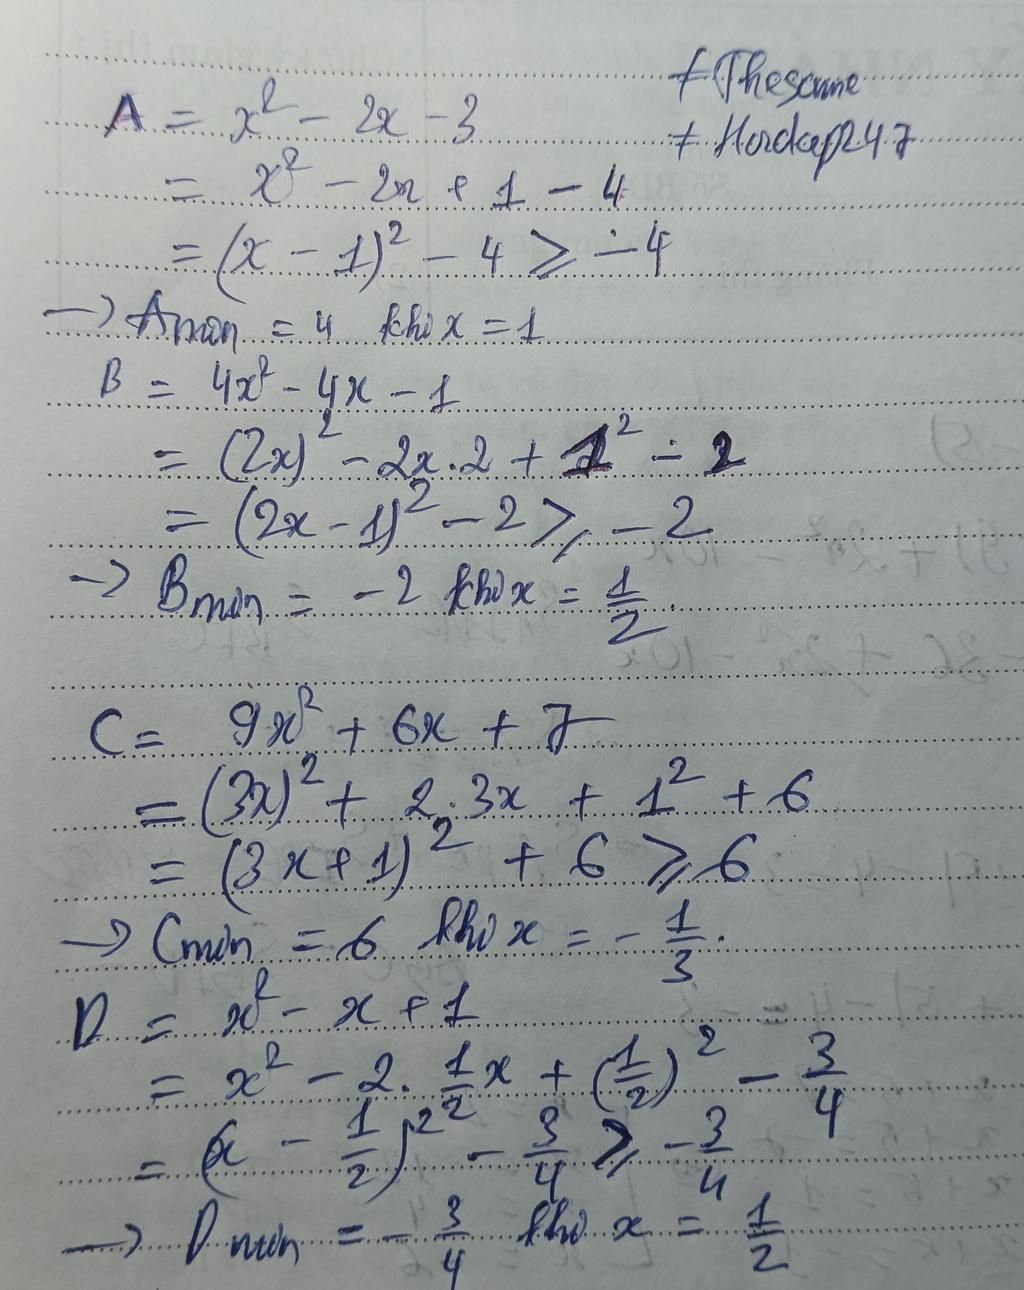 # Thescime
# Hoidap247
A = x² - 2x - 3
= x² - 2x + 1 - 4
= (x - 1)² - 4 ⩾ -4
→ Amin = 4 khi x = 1
B = 4x² - 4x - 1
= (2x)² - 2x.2 + 1² - 2
= (2x - 1)² - 2 ⩾ -2
→ Bmin = -2 khi x = 1/2.
C = 9x² + 6x + 7
= (3x)² + 2.3x + 1² + 6
= (3x + 1)² + 6 ⩾ 6
→ Cmin = 6 khi x = -1/3.
D = x² - x + 1
= x² - 2.1/2x + (1/2)² - 3/4
= (x - 1/2)² - 3/4 ⩾ -3/4
→ Dmin = -3/4 khi x = 1/2